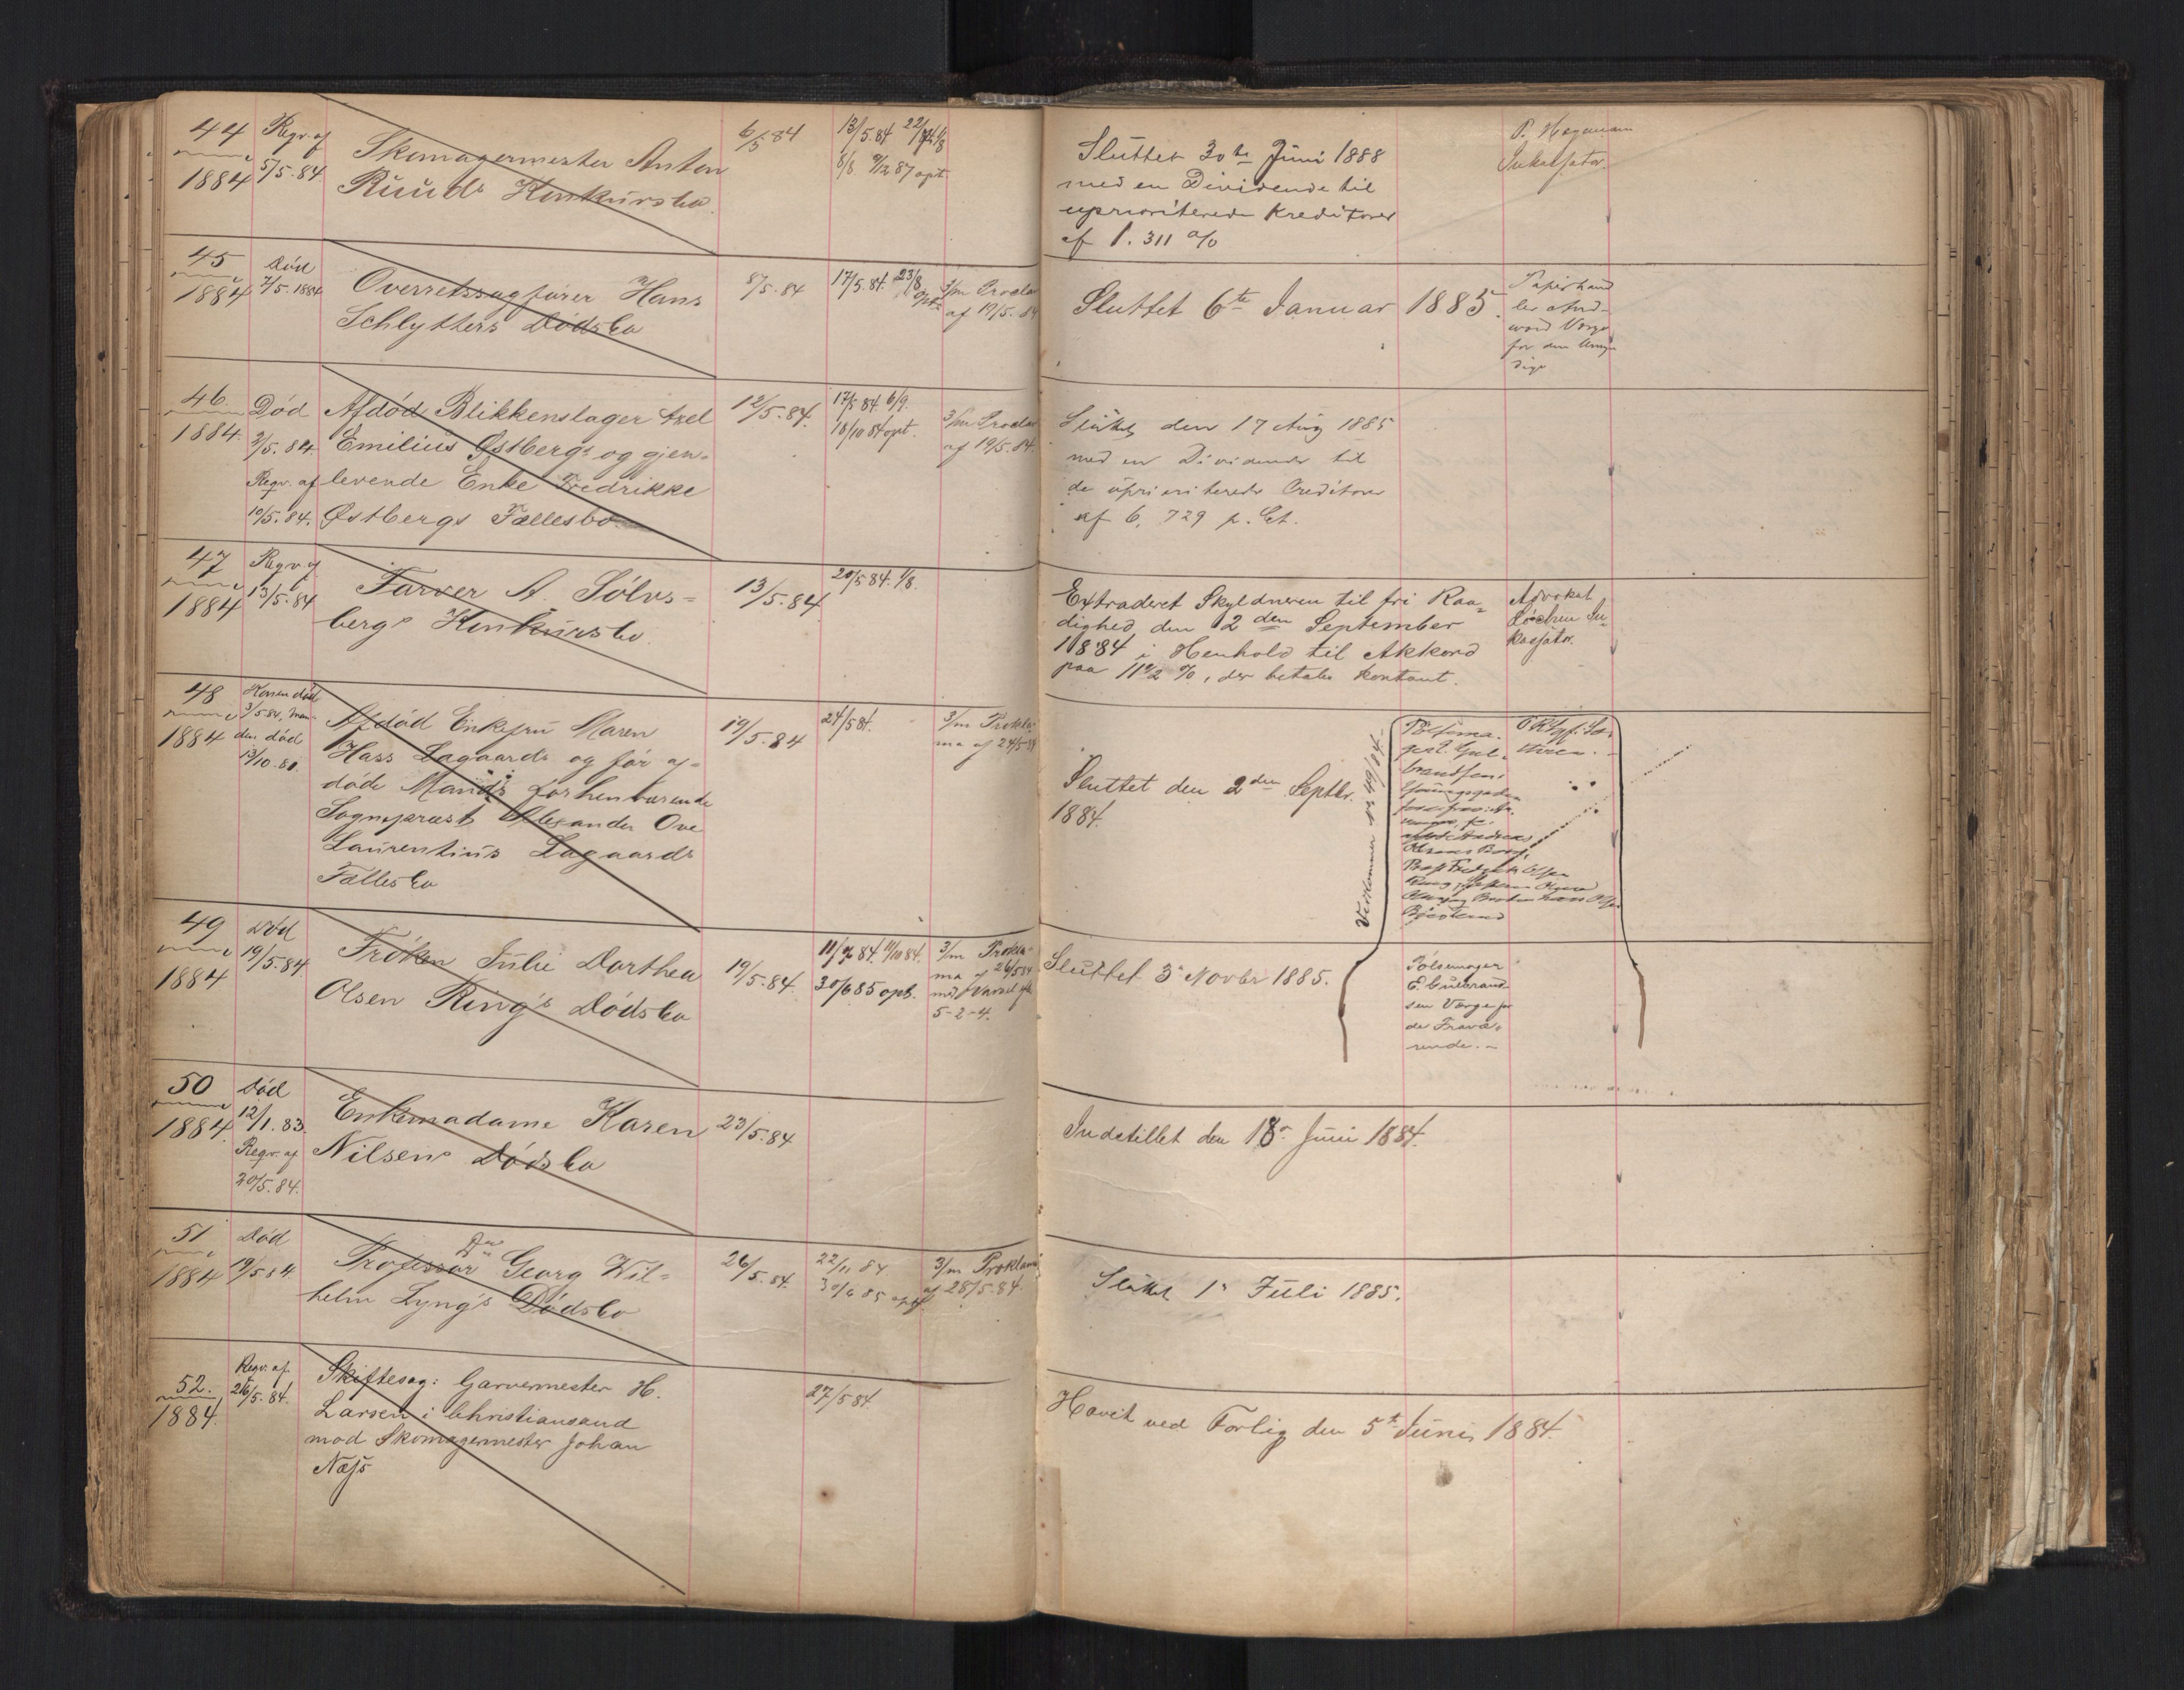 44
1884
Reqv. af
5/5.84
Skomagermester Anton
Ruuds Konkursbo.
6/5 84
13/5.84
8/8 opt
Sluttet 30te Juni 1888
med en Dividende til
uprioriterede Kreditorer
af 1.311 %
P.
Inkassator.
45
1884
Død
7/5.1884
Overretssagfører Hans
Schlytters Dødsbo
8/5.84
17/5.84. 23/8
opt
3/m Procla
af 19/5.84
Sluttet 6te Januar 1885.
Papirhand
ler
Værge
for den Umyn
dige
46.
1884.
Død
2/5.84.
Reqv. af
10/5.84.
Afdød Blikkenslager Axel
Emilius Østbergs og gjen-
levende Enke Fredrikke
Østbergs Fællesbo
12/5.84.
17/5 84. 6/9.
18/10 84 opt.
3/m Procla
af 19/5.84.
Sluttet den 17 Aug 1885
med en Dividende til
de uprioriterede Creditorer
af 6,729 p. Ct.
47
1884
Reqv. af
13/5.84
Farver A. Sølvs-
bergs Konkursbo.
13/5.84
20/5 84. 1/8.
Extraderet Skyldneren til fri Raa-
dighed den 2den September
1884 i Henhold til Akkord
paa 11 1/2 %, der betales kontant.
Advokat
In-
kassator.
48
1884
Konen død
3/5 84, Man-
den død
13/10.80.
Afdød Enkefru Maren
Hass Lagaards og før af-
døde Mands forhenværende
Sognepræst Alexander Ove
Laurentius Lagaards
Fællesbo
19/5.84
24/5 84.
3/m Prokla-
ma af 24/5 84
Sluttet den 2den Septbr.
1884.
Vedkommer No 49/84.
Pølsema-
ger E. Gul-
brandsen
49
1884
Død
19/5.84.
Frøken Julie Dorthea
Olsen Ring's Dødsbo
19/5.84.
84. 11/10 84.
30/6 85 opt.
3/m Prokla-
ma af 26/5 84
med Varsel efter
5-2-4.
Sluttet 3' Novbr 1885.
Pølsemager
E. Gulbrand-
sen Værge for
de Fravæ-
rende.
50
1884.
Død
12/1.83.
Reqv. af
20/5.84.
Enkemadame Karen
Nilsens Dødsbo
23/5.84
Indstillet den 18' Juni 1884.
51
1884
Død
19/5 84.
Professor Georg Wil-
helm Lyng's Dødsbo
26/5.84.
22/11 84
30/6 85 opt
3/m Proklama
af 28/5.84.
Sluttet 1' Juli 1885.
52.
1884.
Reqv. af
26/5.84.
Skiftesag: Garvermester H.
Larsen i Christiansand
mod Skomagermester Johan
Næss
27/5 84
Hævet ved Forlig den 5te Juni 1884.